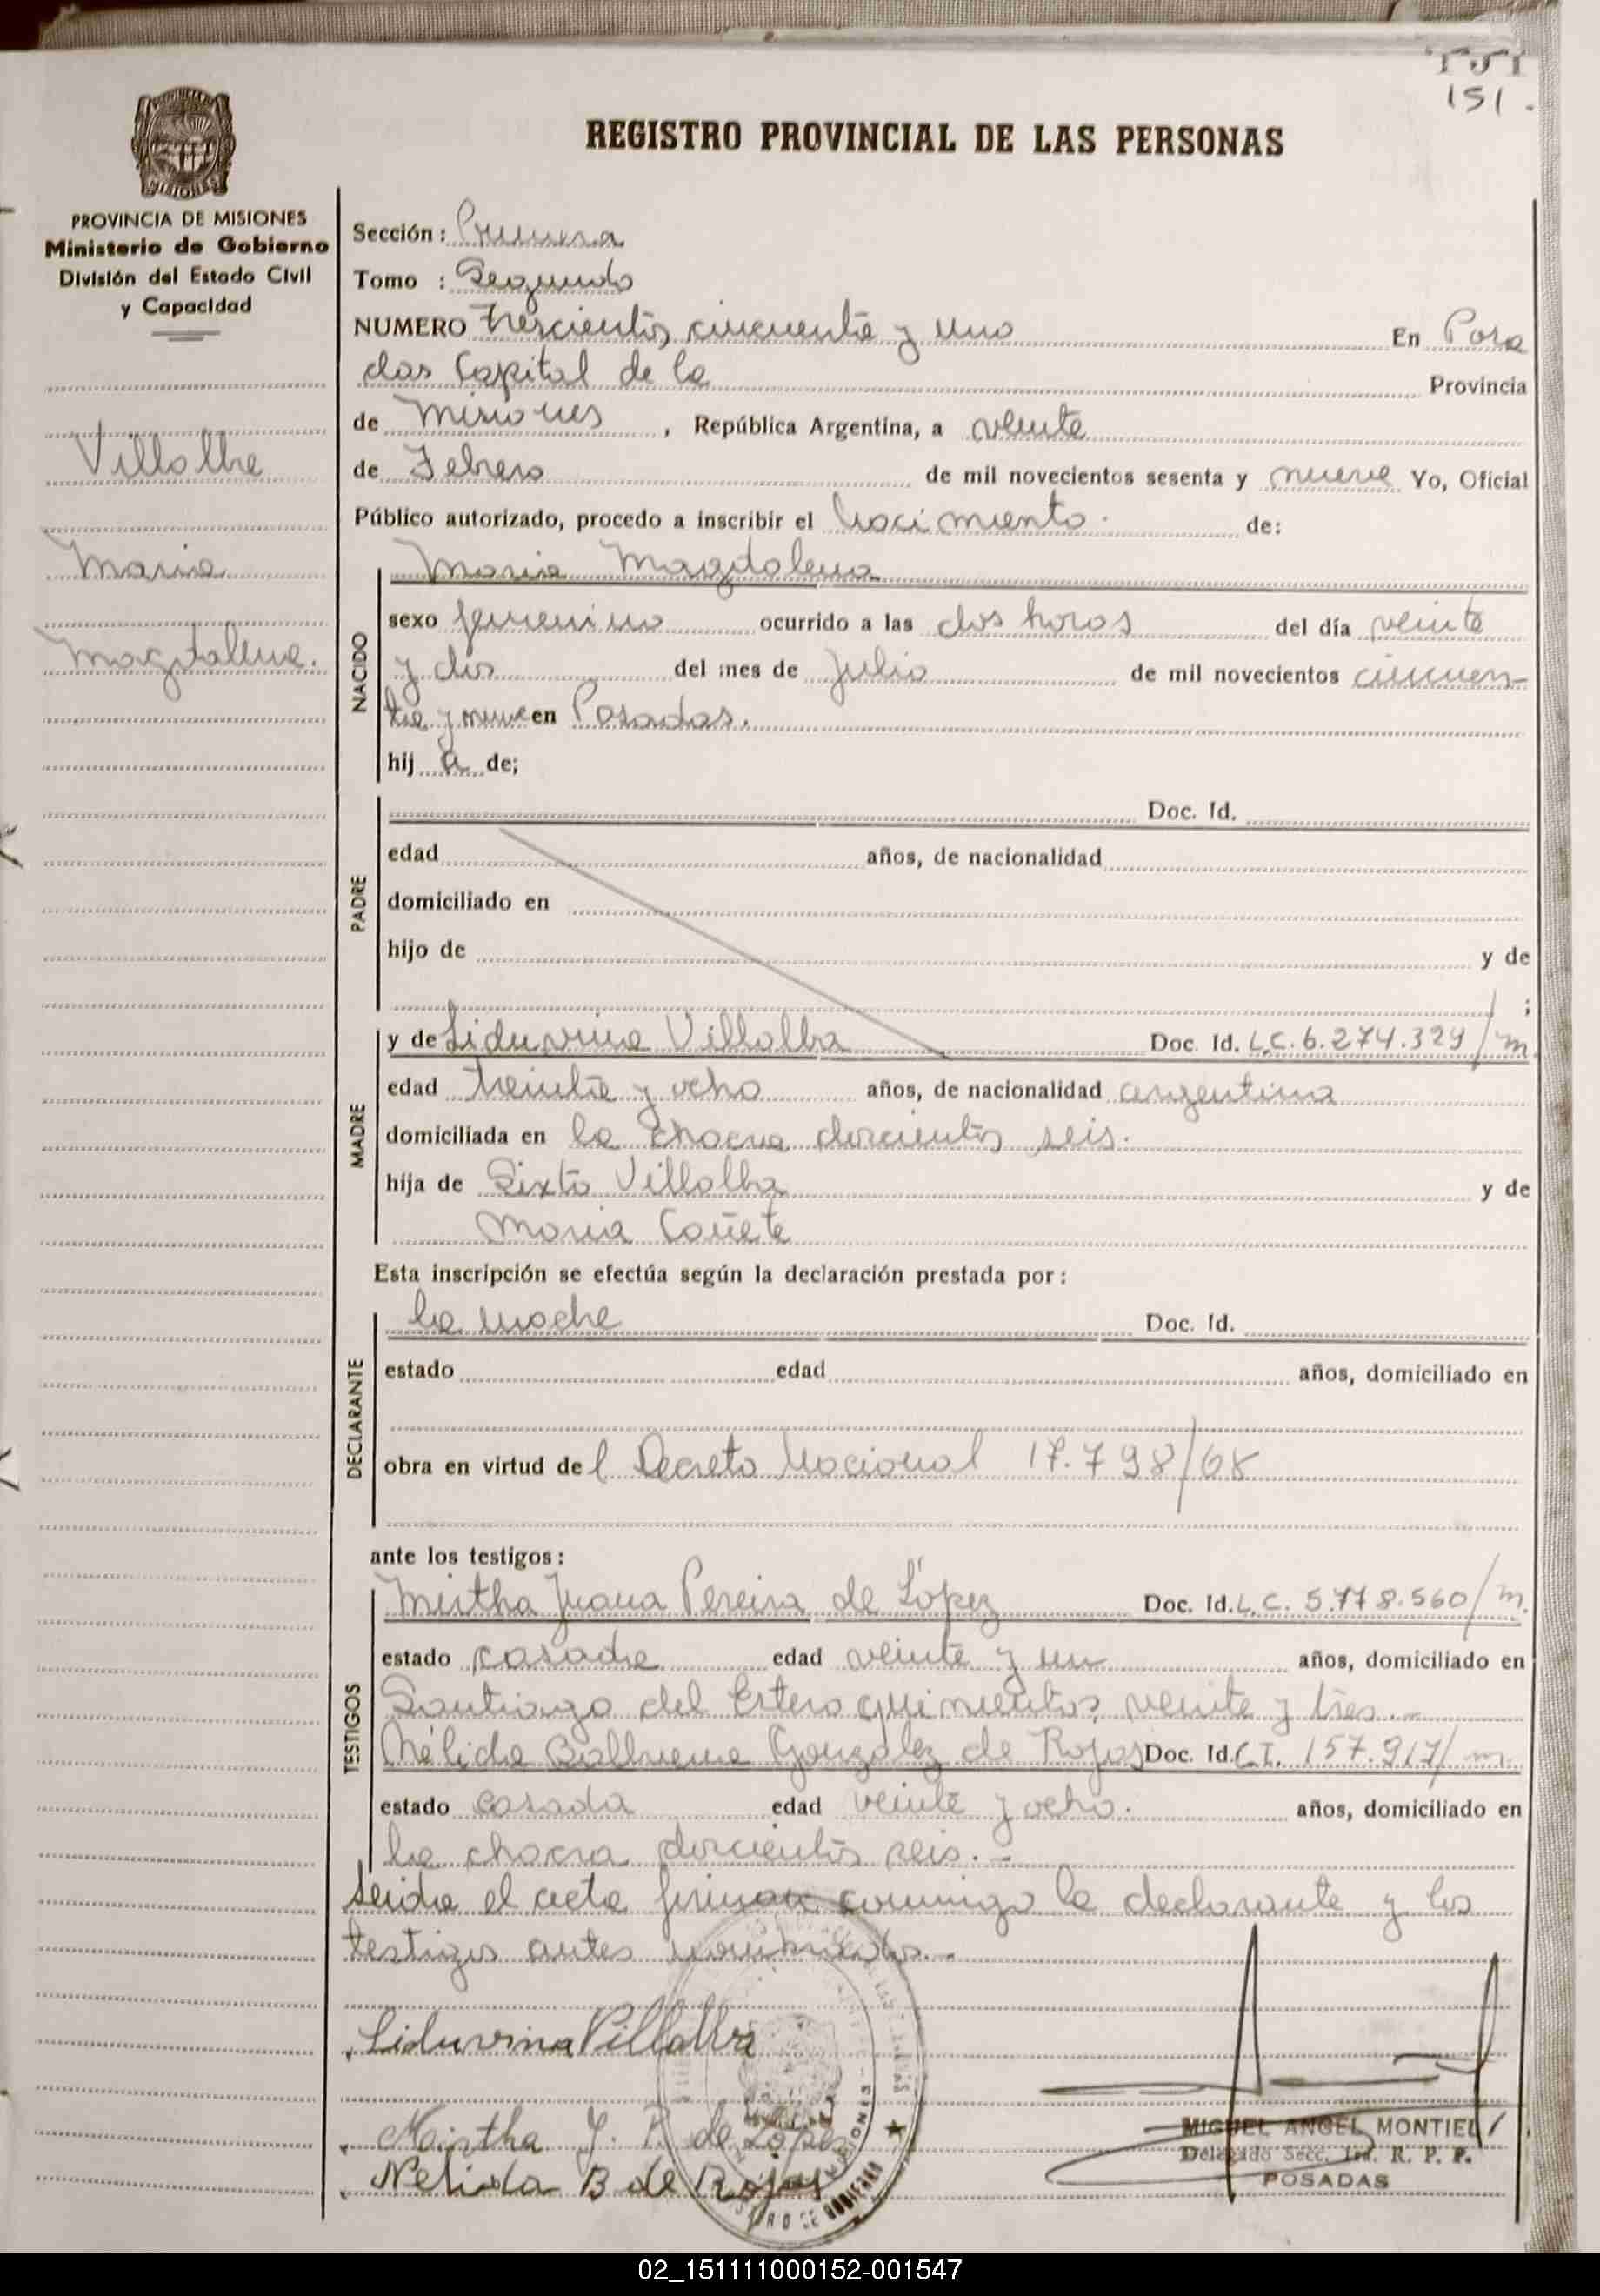 151
151.
REGISTRO PROVINCIAL DE LAS PERSONAS
PROVINCIA DE MISIONES
Ministerio de Gobierno
División del Estado Civil
y Capacidad
Villalba
Maria
Magdalena.
Sección: Primera
Tomo : Segundo
NUMERO trescientos cincuenta y uno En Posa
das Capital de la Provincia
de Misiones, República Argentina, a veinte
de Febrero de mil novecientos sesenta y nueve Yo, Oficial
Público autorizado, procedo a inscribir el Nacimiento. de:
NACIDO
Maria Magdalena
sexo femenino ocurrido a las dos horas del día veinte
y dos del mes de Julio de mil novecientos cincuen
ta y nueve en Posadas.
hij a de;
PADRE
Doc. Id.
edad años, de nacionalidad
domiciliado en
hijo de y de
;
MADRE
y de Liduvina Villalba Doc. Id. L.C. 6.274.329/m
edad treinta y ocho años, de nacionalidad argentina
domiciliada en la chacra doscientos seis.
hija de Sixto Villalba y de
Maria Cañete
Esta inscripción se efectúa según la declaración prestada por:
DECLARANTE
la madre Doc. Id.
estado edad años, domiciliado en
obra en virtud del Decreto Nacional 17.798/68
ante los testigos:
TESTIGOS
Mirtha Juana Pereira de López Doc. Id. L.C. 5.778.560/m.
estado casada edad veinte y un años, domiciliado en
Santiago del Estero quinientos veinte y tres.-
Nélida Ballena González de Rojas Doc. Id. C.I. 157.917/m.
estado casada edad veinte y ocho. años, domiciliado en
la chacra doscientos seis.-
Leida el acta firman conmigo la declarante y los
testigos antes nombrados.-
Liduvina Villalba
Mirtha J. P. de López
Nelida B de Rojas
MIGUEL ANGEL MONTIEL
Delegado Secc. 1ra. R. P. P.
POSADAS
MISIONES
MINISTERIO DE GOBIERNO
02_151111000152-001547